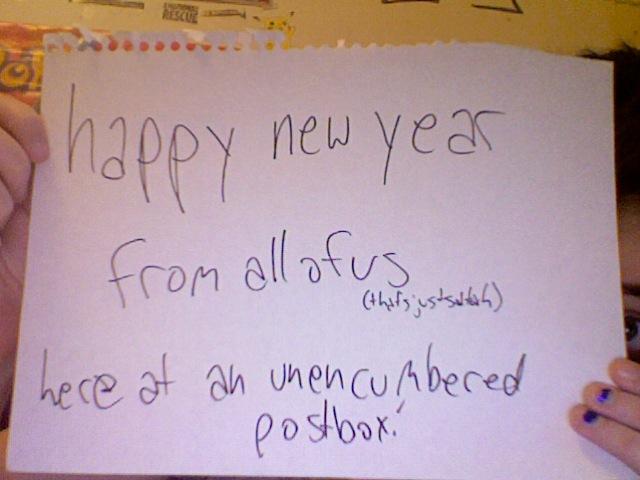 RESCUE
happy new year
from all of us
(that's just sarah)
here at an unencumbered
postbox!